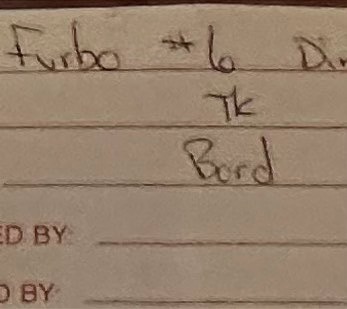 Furbo #6 Din
Tk
Bord
ED BY:
D BY: